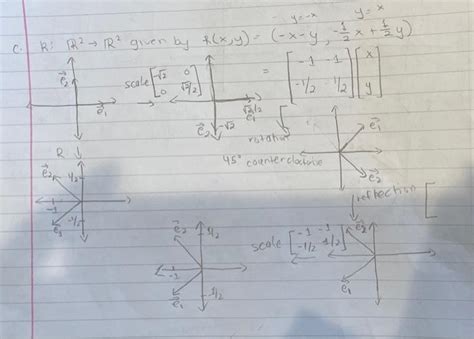 y=-x y=x
c. R: ℝ² → ℝ² given by R(x,y) = (-x-y, -1/2 x + 1/2 y)
= [-1 -1; -1/2 1/2] [x; y]
e⃗₂
e⃗₁
scale [-√2 0; 0 √2/2]
√2/2
e⃗₁
e⃗₂ -√2
rotation [
45° counterclockwise
e⃗₁
e⃗₂
R ↓
e⃗₂ 1/2
-1
e⃗₁ -1/2
reflection [
e⃗₂ 1/2
-1
e⃗₁ -1/2
scale [-1 -1; -1/2 1/2]
e⃗₂
e⃗₁